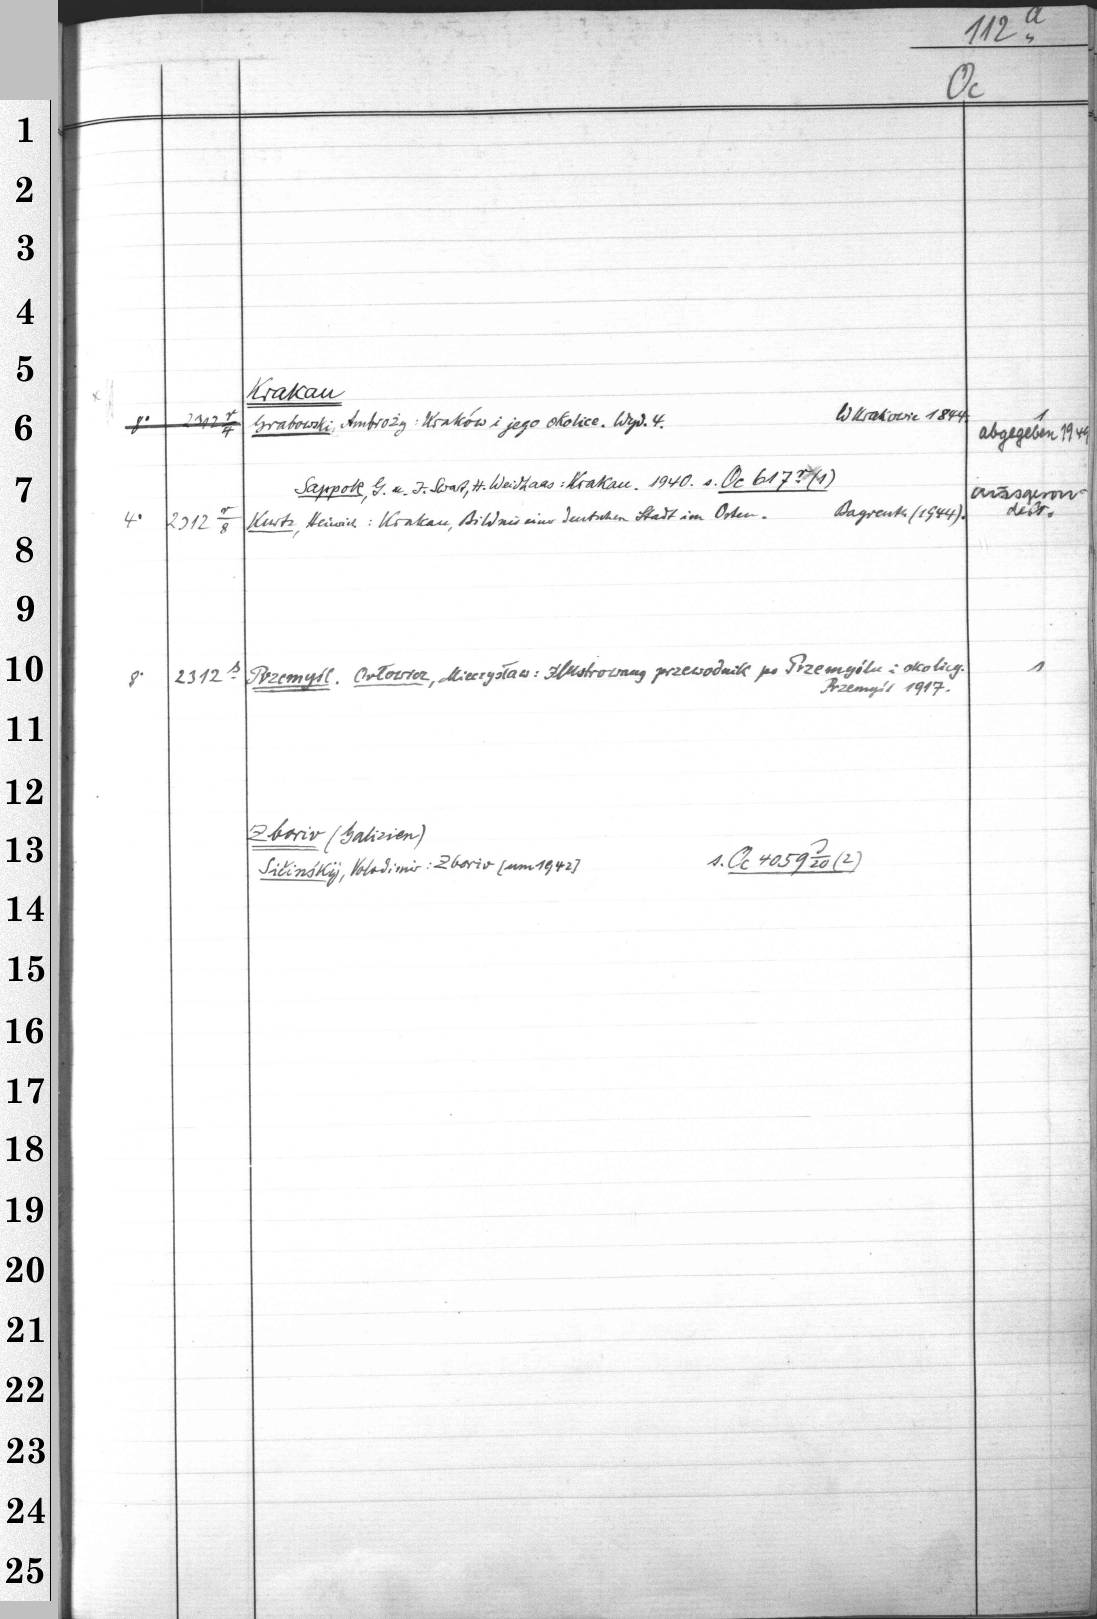 112 a
Oc
Krakau
8° 2312 r/4 Grabowski, Ambroży: Kraków i jego okolice. Wyd. 4. W Krakowie 1844. 1
abgegeben 1944
Sappok, G. u. J. Swat, H. Weidhaas: Krakau. 1940. s. Oc 617 r (1)
ausgeson-
dert.
4° 2312 r/8 Kurtz, Heinrich: Krakau, Bildnis einer deutschen Stadt im Osten. Bayreuth (1944).
8° 2312 s Przemyśl. Orłowicz, Mieczysław: Illustrowany przewodnik po Przemyślu i okolicy. 1
Przemyśl 1917.
Zboriv (Galizien)
Sičinśkij, Volodimir: Zboriv [um 1942] s. Oc 4059 /20 (2)
1
2
3
4
5
6
7
8
9
10
11
12
13
14
15
16
17
18
19
20
21
22
23
24
25